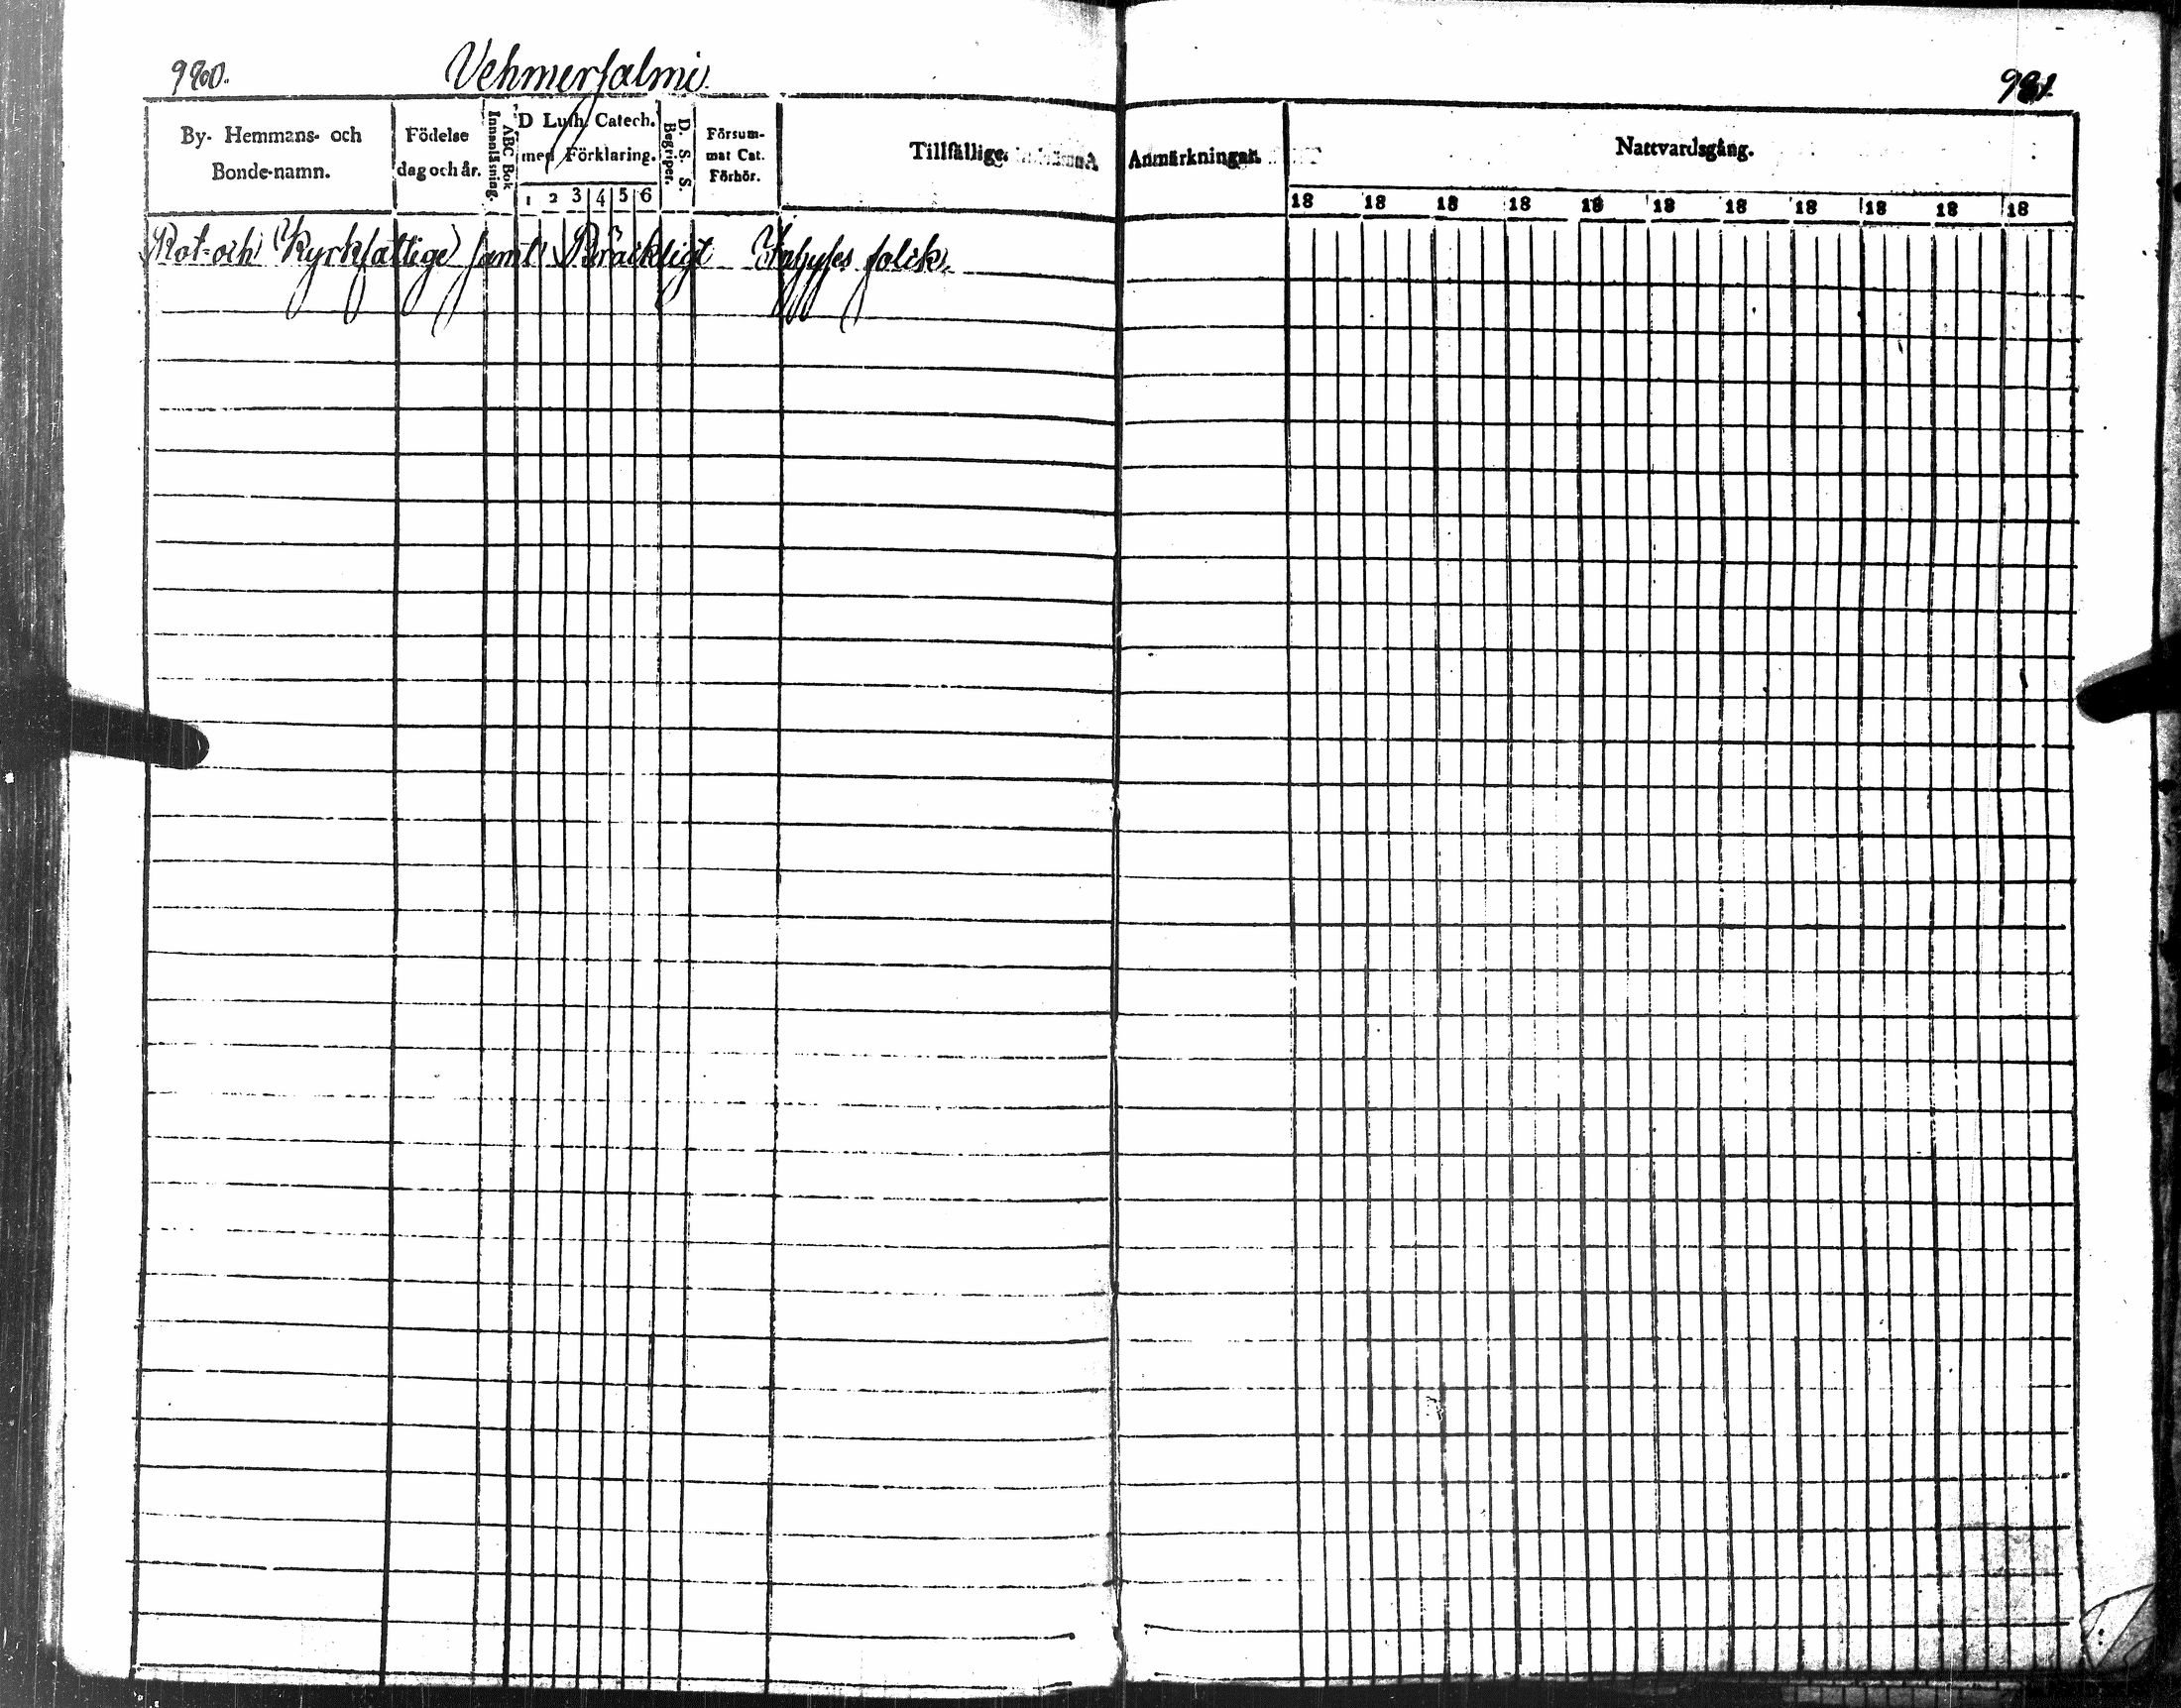 980. Vehmersalmi 981
By- Hemmans- och Bonde-namn.
Födelse dag och år.
Innanläsning.
ABC Bok
D Luth. Catech. med Förklaring.
1 2 3 4 5 6
D. S. S. Begriper.
Försum- mat Cat. Förhör.
Tillfällige Anmärkningar.
Nattvardsgång.
18 18 18 18 18 18 18 18 18 18 18
Rot- och Kyrkfattige samt Bräckligt Inhyses folck